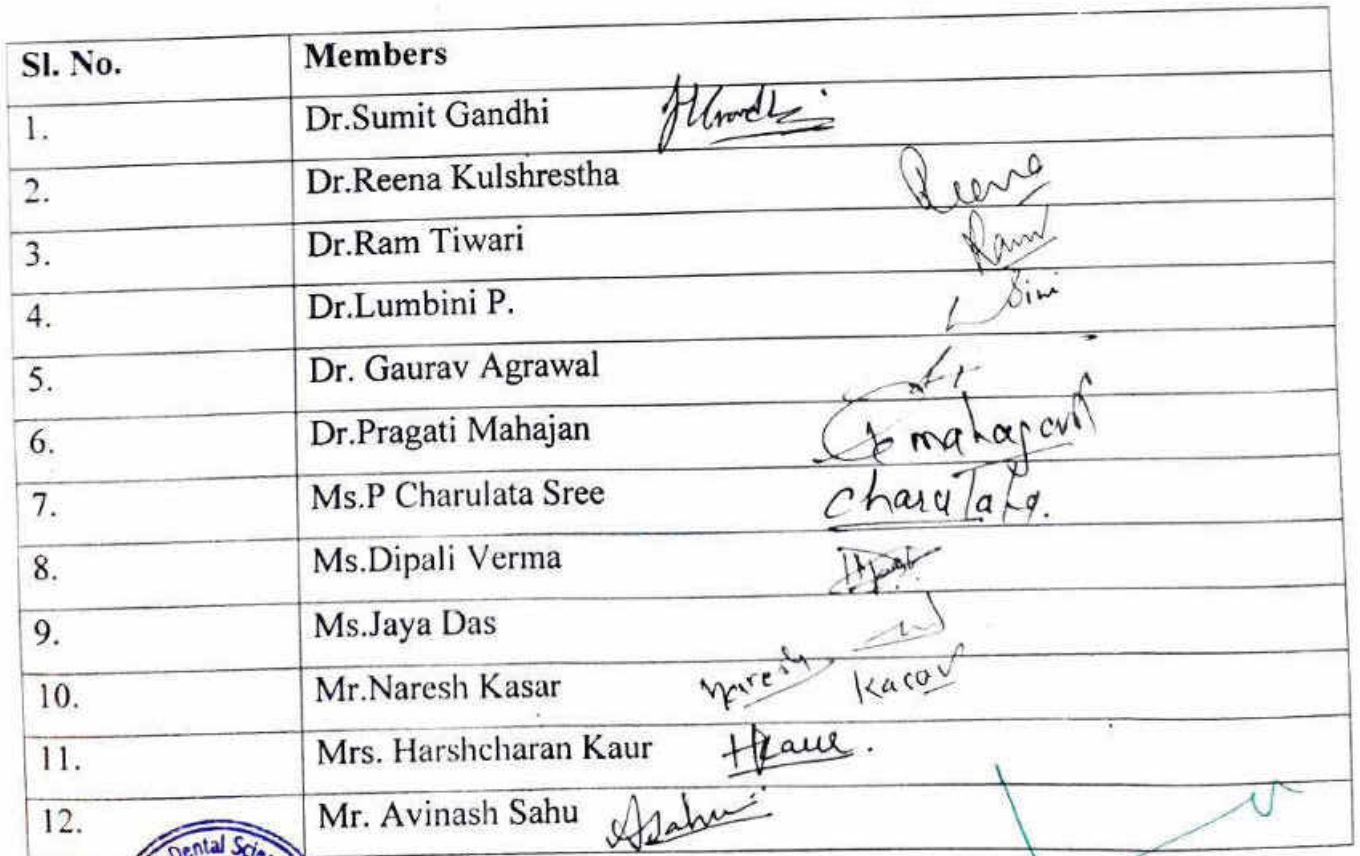 Sl. No. Members
1. Dr.Sumit Gandhi
2. Dr.Reena Kulshrestha Reena
3. Dr.Ram Tiwari Ram
4. Dr.Lumbini P.
5. Dr. Gaurav Agrawal
6. Dr.Pragati Mahajan mahajan
7. Ms.P Charulata Sree Charulata.
8. Ms.Dipali Verma
9. Ms.Jaya Das
10. Mr.Naresh Kasar Naresh Kasar
11. Mrs. Harshcharan Kaur HKaur.
12. Mr. Avinash Sahu ASahu
Dental Scien